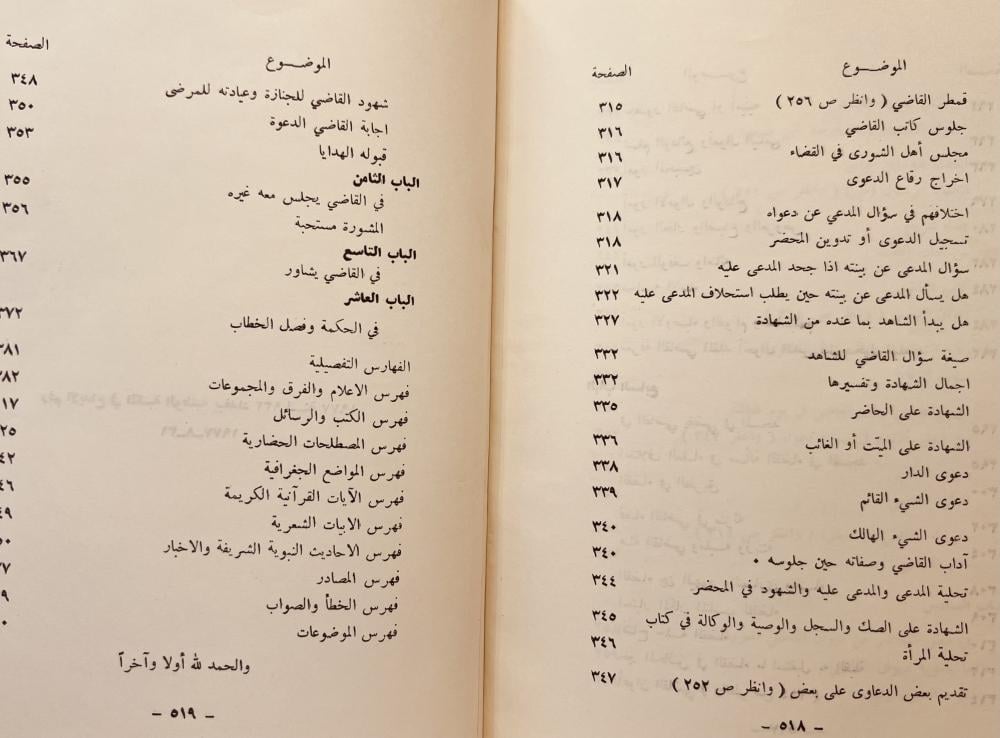 الموضـــوع الصفحة
قمطر القاضي ( وانظر ص ٢٥٦ ) ٣١٥
جلوس كاتب القاضي ٣١٦
مجلس أهل الشورى في القضاء ٣١٦
اخراج رقاع الدعوى ٣١٧
اختلافهم في سؤال المدعي عن دعواه ٣١٨
تسجيل الدعوى أو تدوين المحضر ٣١٨
سؤال المدعى عن بينته اذا جحد المدعى عليه ٣٢١
هل يسأل المدعى عن بينته حين يطلب استحلاف المدعى عليه ٣٢٢
هل يبدأ الشاهد بما عنده من الشهادة ٣٢٧
صيغة سؤال القاضي للشاهد ٣٣٢
اجمال الشهادة وتفسيرها ٣٣٢
الشهادة على الحاضر ٣٣٥
الشهادة على الميّت أو الغائب ٣٣٦
دعوى الدار ٣٣٨
دعوى الشيء القائم ٣٣٩
دعوى الشيء الهالك ٣٤٠
آداب القاضي وصفاته حين جلوسه ٠ ٣٤٠
تحلية المدعى والمدعى عليه والشهود في المحضر ٣٤٤
الشهادة على الصك والسجل والوصية والوكالة في كتاب ٣٤٥
تحلية المرأة ٣٤٦
تقديم بعض الدعاوى على بعض ( وانظر ص ٢٥٢ ) ٣٤٧
– ٥١٨ –
الموضـــوع الصفحة
شهود القاضي للجنازة وعيادته للمرضى ٣٤٨
اجابة القاضي الدعوة ٣٥٠
قبوله الهدايا ٣٥٣
الباب الثامن
في القاضي يجلس معه غيره ٣٥٥
المشورة مستحبة ٣٥٦
الباب التاسع
في القاضي يشاور ٣٦٧
الباب العاشر
في الحكمة وفصل الخطاب ٣٧٢
الفهارس التفصيلية ٣٨١
فهرس الاعلام والفرق والمجموعات ٣٨٢
فهرس الكتب والرسائل ١٧
فهرس المصطلحات الحضارية ٢٥
فهرس المواضع الجغرافية ٤٢
فهرس الآيات القرآنية الكريمة ٤٦
فهرس الابيات الشعرية ٤٩
فهرس الاحاديث النبوية الشريفة والاخبار
فهرس المصادر
فهرس الخطأ والصواب
فهرس الموضوعات
والحمد لله أولا وآخراً
– ٥١٩ –